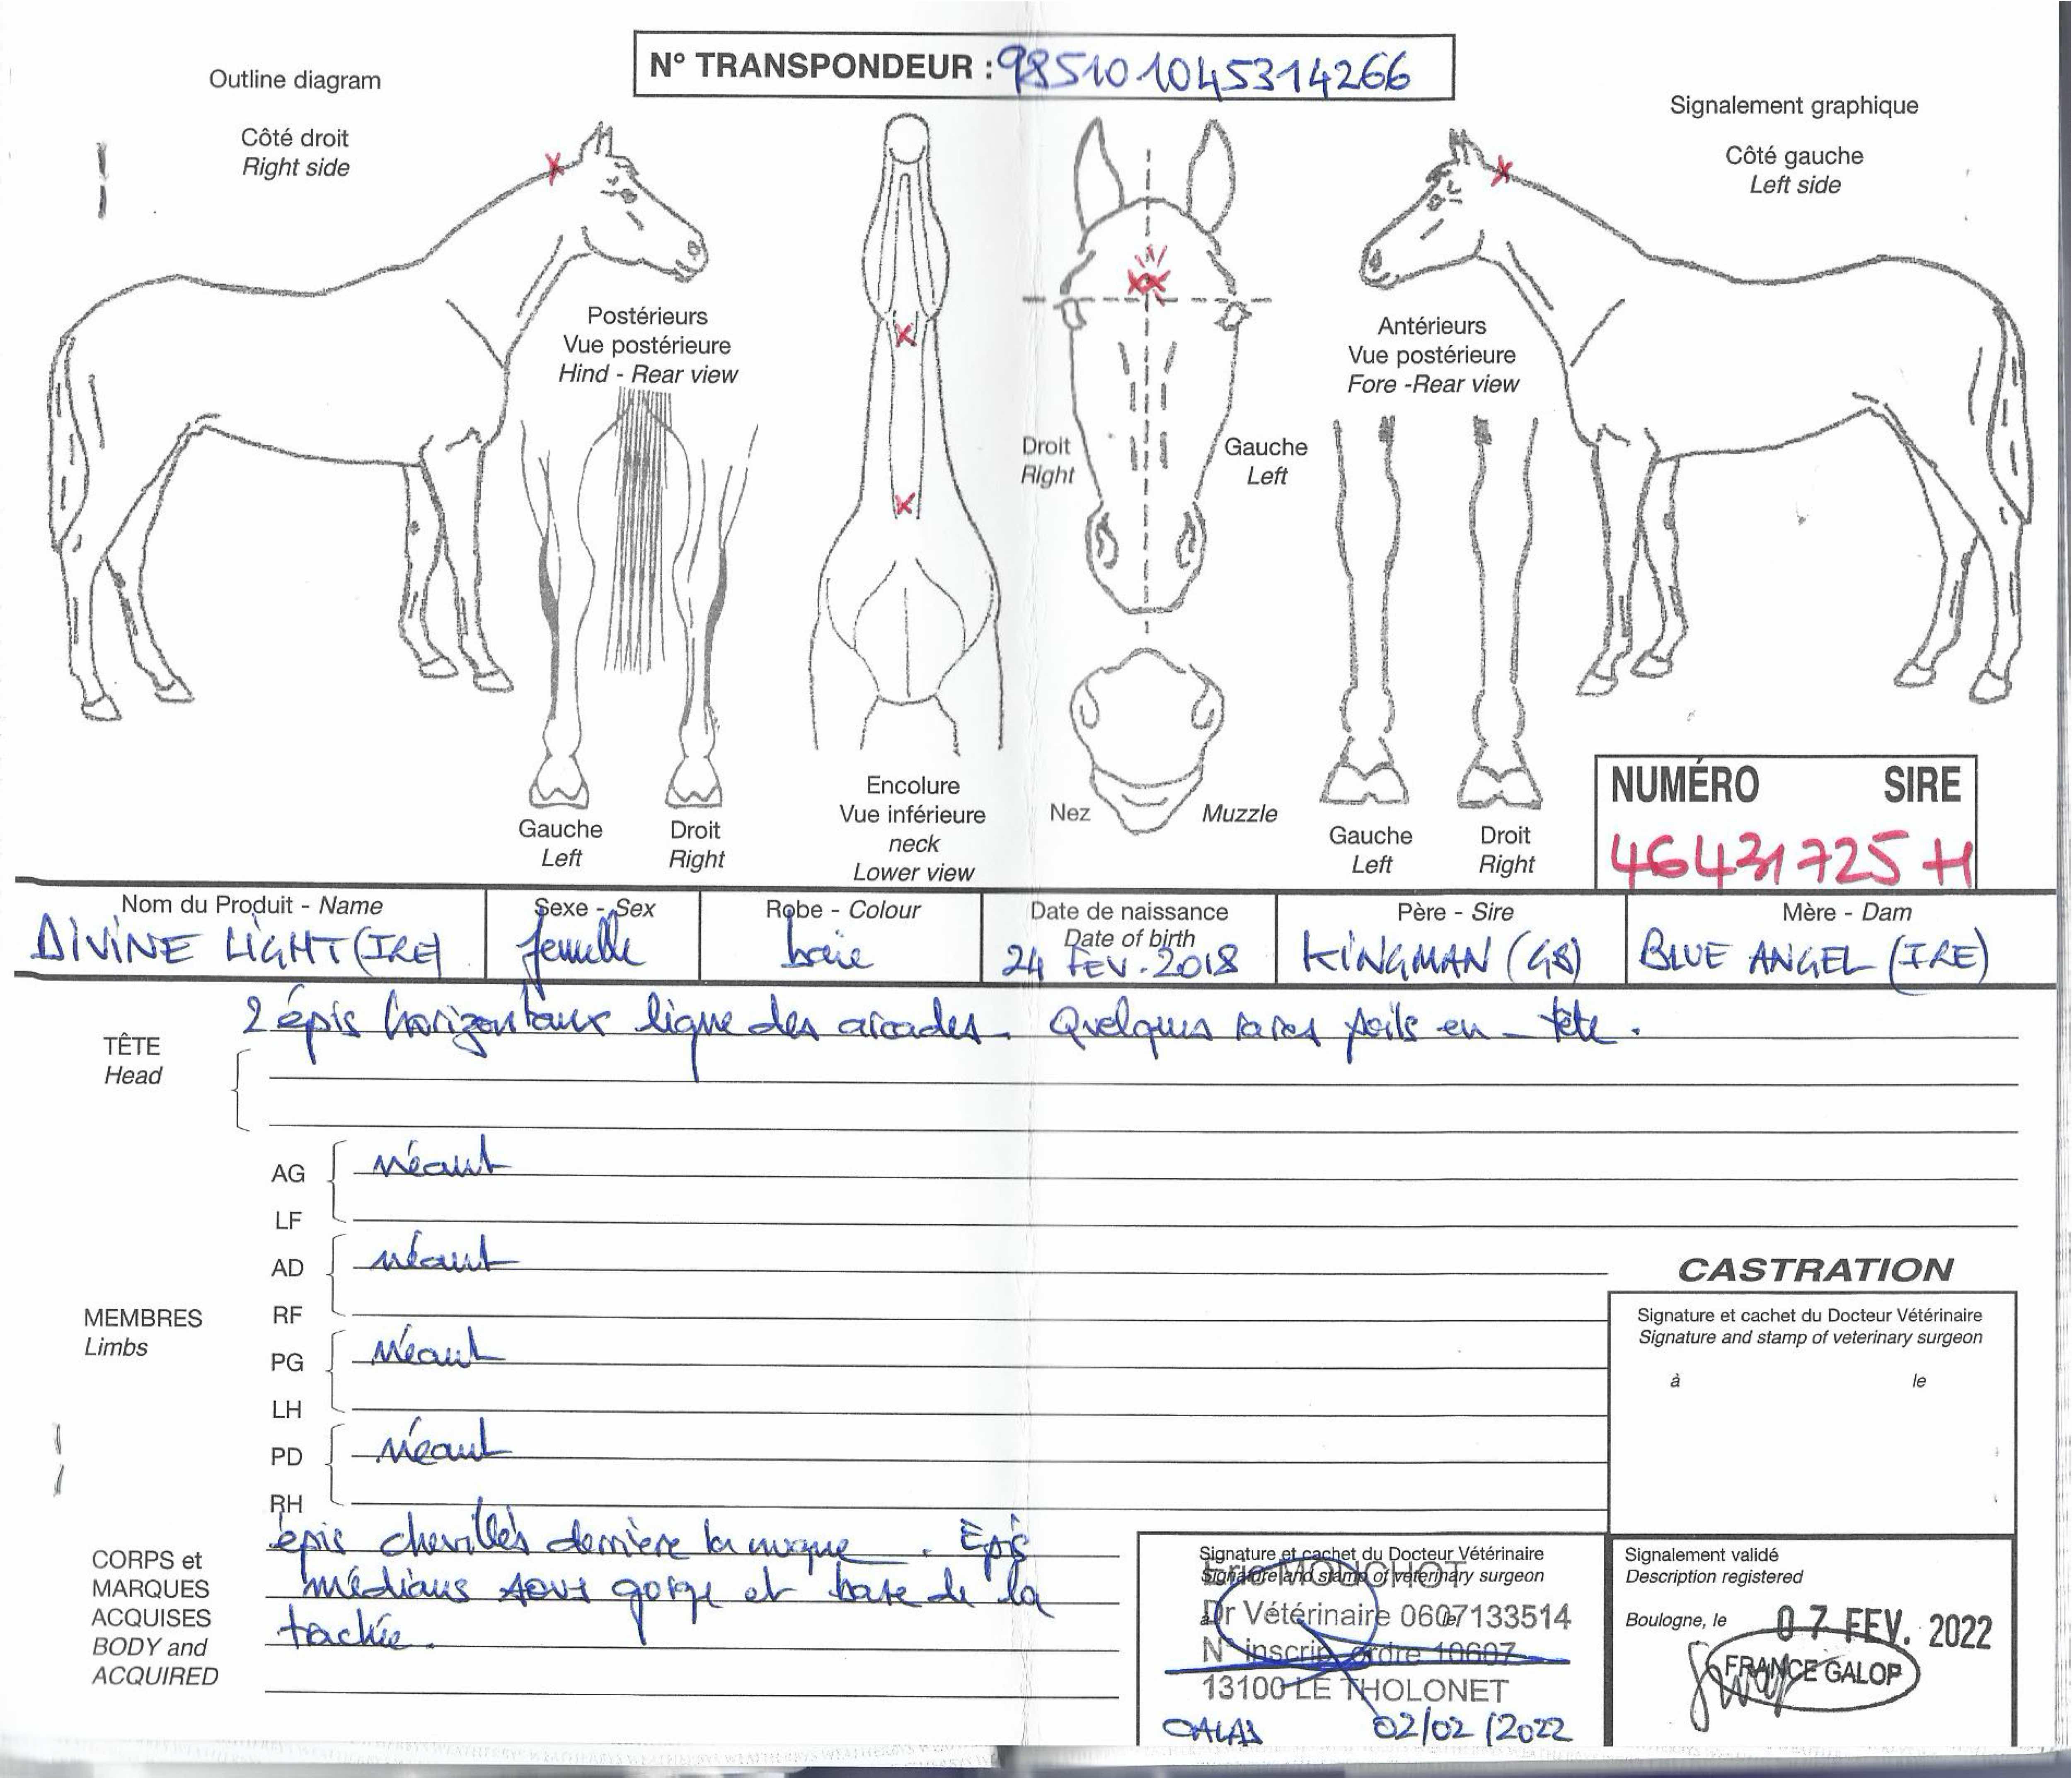 N° TRANSPONDEUR : 985101045314266
Outline diagram
Côté droit
Right side
Signalement graphique
Côté gauche
Left side
Postérieurs
Vue postérieure
Hind - Rear view
Antérieurs
Vue postérieure
Fore -Rear view
Droit
Right
Gauche
Left
Encolure
Vue inférieure
neck
Lower view
Nez
Muzzle
Gauche
Left
Droit
Right
Gauche
Left
Droit
Right
NUMÉRO SIRE
46431725 H
Nom du Produit - Name
DIVINE LIGHT (IRE)
Sexe - Sex
femelle
Robe - Colour
baie
Date de naissance
Date of birth
24 FEV. 2018
Père - Sire
KINGMAN (GB)
Mère - Dam
BLUE ANGEL (IRE)
TÊTE
Head
2 épis horizontaux ligne des arcades. Quelques rares poils en tête.
MEMBRES
Limbs
AG
LF
néant
AD
RF
néant
PG
LH
néant
PD
RH
néant
CASTRATION
Signature et cachet du Docteur Vétérinaire
Signature and stamp of veterinary surgeon
à le
CORPS et
MARQUES
ACQUISES
BODY and
ACQUIRED
épis chevillés derrière la nuque. Epis
médians sous gorge et base de la
trachée.
Signature et cachet du Docteur Vétérinaire
Signature and stamp of veterinary surgeon
Eric MOUCHOT
Dr Vétérinaire 0607133514
N° inscrip. ordre 10607
13100 LE THOLONET
CALAS 02/02/2022
Signalement validé
Description registered
Boulogne, le 07 FEV. 2022
FRANCE GALOP